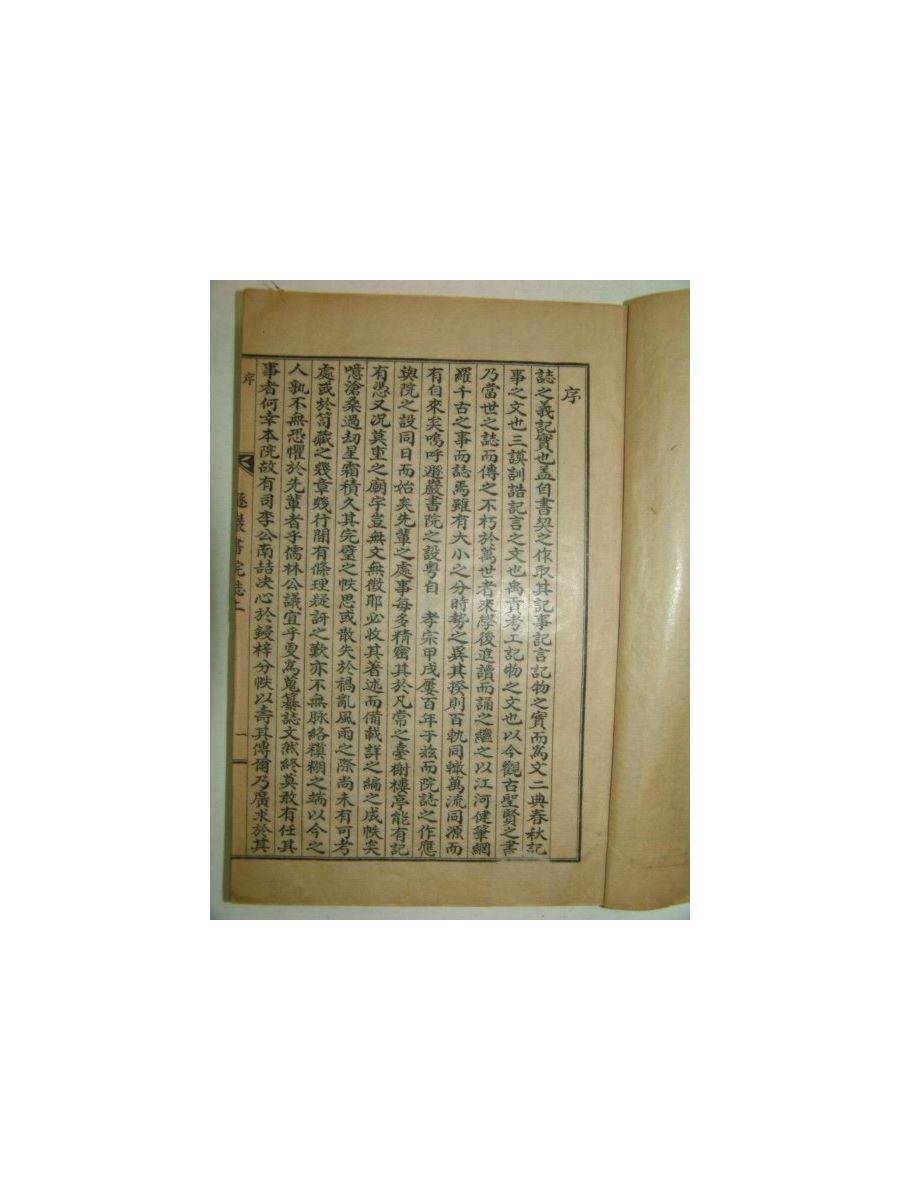 序
誌之義記實也盖自書契之作取其記事記言記物之實而爲文二典春秋記
事之文也三謨訓誥記言之文也禹貢考工記物之文也以今觀古聖賢之書
乃當世之誌而傳之不朽於萬世者來學後進讀而誦之繼之以江河健筆網
羅千古之事而誌焉雖有大小之分時勢之異其揆則百軌同轍萬流同源而
有自來矣嗚呼遯巖書院之設粤自 孝宗甲戌屢百年于玆而院誌之作應
與院之設同日而始矣先輩之處事每多精密其於凡常之臺榭樓亭能有記
有憑又况莫重之廟宇豈無文無徵耶必收其著述而備載詳之編之成帙矣
噫滄桑過劫星霜積久其完璧之帙思或散失於禍亂風雨之際尚未有可考
處或於笥藏之幾章幾行間有條理疑訝之歎亦不無脉絡糢糊之端以今之
人孰不無恐懼於先輩者乎儒林公議宜乎更爲蒐纂誌文然終莫敢有任其
事者何幸本院故有司李公南喆决心於鋟梓分帙以壽其傳爾乃廣求於其
序 遯巖書院誌上 一